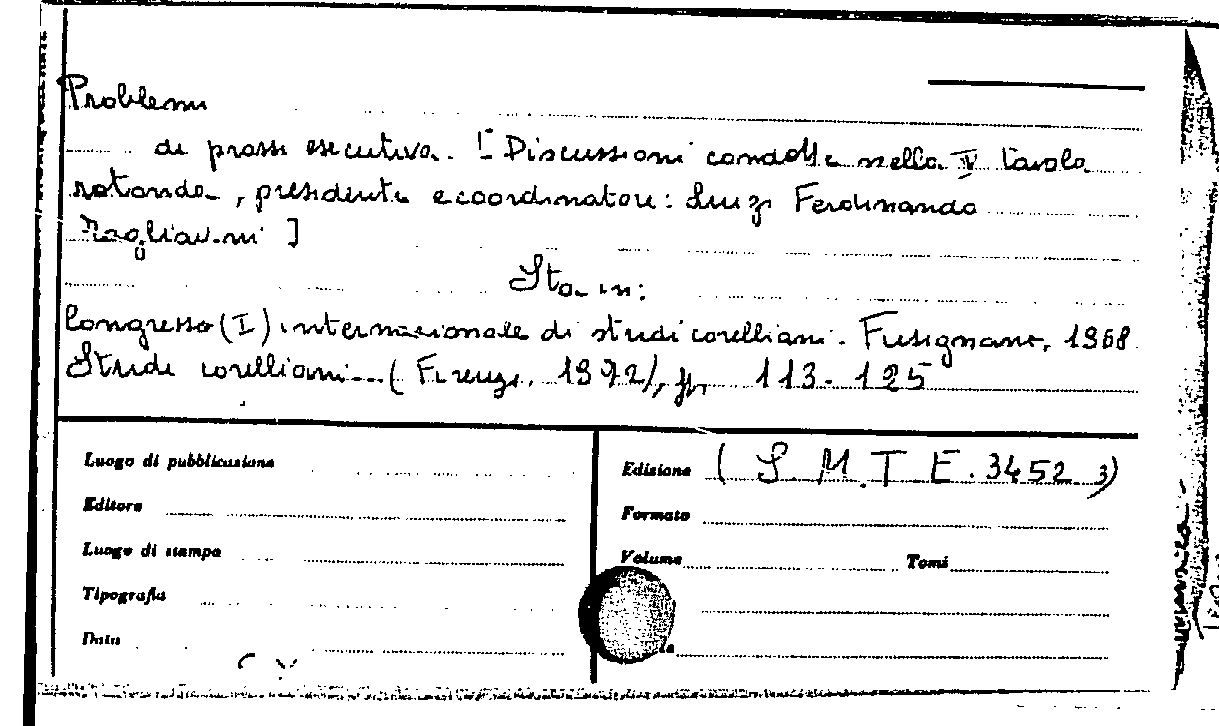 Problemi
di prassi esecutiva. [Discussioni condotte nella IV tavola
rotonda, presidente e coordinatore: Luigi Ferdinando
Tagliavini]
Sta in:
Congresso (I) internazionale di studi corelliani. Fusignano, 1968.
Studi corelliani... (Firenze, 1972), pp. 113-125
Luogo di pubblicazione
Edizione (S. M. T E. 3452 3)
Editore
Formato
Luogo di stampa
Volume Tomi
Tipografia
Data